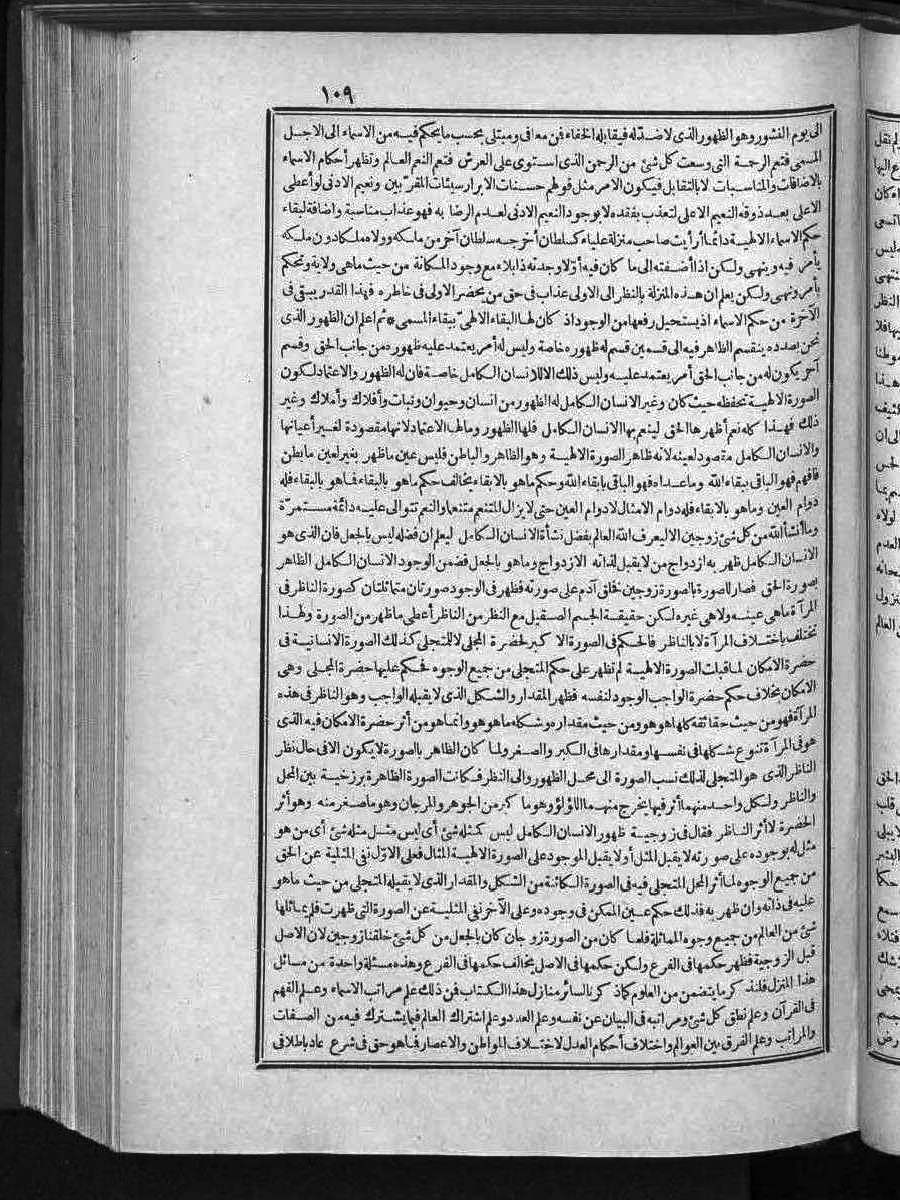 ١٠٩
الى يوم النشور وهو الظهور الذى لا ضد له فيقابله الخفاء فن معافى ومبتلى بحسب ما يحكم فيه من الاسماء الى الاجل
المسمى فتعم الرحمة التى وسعت كل شئ من الرحمن الذى استوى على العرش فتعم النعم العالم وتظهر أحكام الاسماء
بالاضافات والمناسبات لا بالتقابل فيكون الامر مثل قولهم حسنات الابرار سيئات المقرّبين ونعيم الادنى لو أعطى
الاعلى بعد ذوقه النعيم الاعلى لتعذب بفقده لا بوجود النعيم الادنى لعدم الرضا به فهو عذاب مناسبة واضافة لبقاء
حكم الاسماء الالهية دائما أرأيت صاحب منزلة علياء كسلطان آخر جسه سلطان آخر من ملكه وولاه ملكا دون ملكه
يأمر فيه وينهى ولكن اذا أضفته الى ما كان فيه أوّلا وجدته ذا بلاء مع وجود المكانة من حيث ما هى ولاية وتحكم
بأمر ونهى ولكن يعلم ان هذه المنزلة بالنظر الى الاولى عذاب فى حق من يحضر الاولى فى خاطره فهذا القدر يبقى فى
الآخرة من حكم الاسماء اذ يستحيل رفعها من الوجود اذ كان لها البقاء الالهىّ ببقاء المسمى * ثم اعلم ان الظهور الذى
نحن بصدده ينقسم الظاهر فيه الى قسمين قسم له ظهوره خاصة وليس له أمر يعتمد عليه ظهوره من جانب الحق وقسم
آخر يكون له من جانب الحق أمر يعتمد عليه وليس ذلك الا للانسان الكامل خاصة فان له الظهور والاعتماد لكون
الصورة الالهية تحفظه حيث كان وغير الانسان الكامل له الظهور من انسان وحيوان ونبات وأفلاك وأملاك وغير
ذلك فهذا كله نعم أظهرها الحق لينعم بها الانسان الكامل فلها الظهور وما لها الاعتماد لانها مقصودة لغير أعيانها
والانسان الكامل مقصود لعينه لانه ظاهر الصورة الالهية وهو الظاهر والباطن فليس عين ما ظهر بغير لعين ما بطن
فافهم فهو الباقى ببقاء الله وما عداه فهو الباقى بابقاء الله وحكم ما هو بالابقاء يخالف حكم ما هو بالبقاء فما هو بالبقاء فله
دوام العين وما هو بالابقاء فله دوام الامثال لا دوام العين حتى لا يزال المتنعم متنعما والنعم تتوالى عليه دائمة مستمرّة
وما أنشأ الله من كل شئ زوجين الا ليعرف الله العالم بفضل نشأة الانسان الكامل ليعلم ان فضله ليس بالجعل فان الذى هو
الانسان الكامل ظهر به ازدواج من لا يقبل لذاته الازدواج وما هو بالجعل فضمن الوجود الانسان الكامل الظاهر
بصورة الحق فصار الصورة بالصورة زوجين فخلق آدم على صورته فظهر فى الوجود صورتان متماثلتان كصورة الناظر فى
المرآة ما هى عينه ولا هى غيره ولكن حقيقة الجسم الصقيل مع النظر من الناظر أعطى ما ظهر من الصورة ولهذا
تختلف باختلاف المرآة لا بالناظر فالحكم فى الصورة الاكبر لحضرة المجلى لا للمتجلى كذلك الصورة الانسانية فى
حضرة الامكان لما قبات الصورة الالهية لم تظهر على حكم المتجلى من جميع الوجوه فحكم عليها حضرة المجلى وهى
الامكان بخلاف حكم حضرة الواجب الوجود لنفسه فظهر المقدار والشكل الذى لا يقبله الواجب وهو الناظر فى هذه
المرآة فهو من حيث حقائقه كلها هو هو ومن حيث مقداره وشكله ما هو هو وانما هو من أثر حضرة الامكان فيه الذى
هو فى المرآة تنوع شكلها فى نفسها ومقدارها فى الكبر والصغر ولما كان الظاهر بالصورة لا يكون الا فى حال نظر
الناظر الذى هو المتجلى لذلك نسب الصورة الى محل الظهور والى النظر فكانت الصورة الظاهرة برزخية بين المحل
والناظر ولكل واحد منهما أثر فيها يخرج منهما اللؤلؤ وهو ما كبر من الجوهر والمرجان وهو ما صغر منه وهو أثر
الحضرة لا أثر الناظر فقال فى زوجية ظهور الانسان الكامل ليس كمثله شئ أى ليس مثل مثله شئ أى من هو
مثل له بوجوده على صورته لا يقبل المثل أو لا يقبل الموجود على الصورة الالهية المثال فعلى الاوّل نفى المثلية عن الحق
من جميع الوجوه لما أثر المحل المتجلى فيه فى الصورة الكائنة من الشكل والمقدار الذى لا يقبله المتجلى من حيث ما هو
عليه فى ذاته وان ظهر به فذلك حكم عين الممكن فى وجوده وعلى الآخر نفى المثلية عن الصورة التى ظهرت فلم يماثلها
شئ من العالم من جميع وجوه المماثلة فلما كان من الصورة زوجان كان بالجعل من كل شئ خلقنا زوجين لان الاصل
قبل الزوجية فظهر حكمها فى الفرع ولكن حكمها فى الاصل يخالف حكمها فى الفرع وهذه مسئلة واحدة من مسائل
هذا المنزل فلنذكر ما يتضمن من العلوم كما ذكرنا لسائر منازل هذا الكتاب فن ذلك علم مراتب الاسماء وعلم الفهم
فى القرآن وعلم نطق كل شئ ومراتبه فى البيان عن نفسه وعلم العدد وعلم اشتراك العالم فيما يشترك فيه من الصفات
والمراتب وعلم الفرق بين العوالم واختلاف أحكام العدل لاختلاف المواطن والاعصار فما هو حق فى شرع عاد باطلا فى